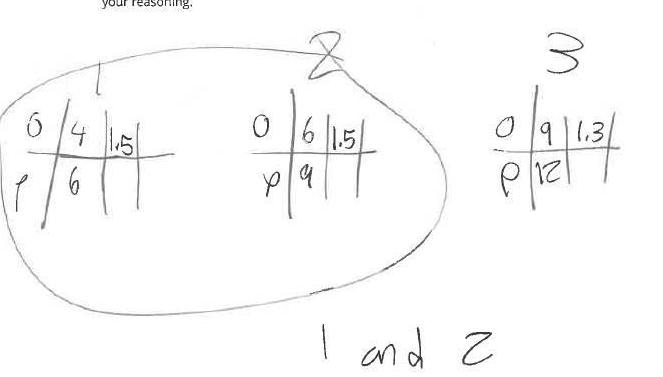 your reasoning.
1 2 3
O 4 1.5
P 6
O 6 1.5
P 9
O 9 1.3
P 12
1 and 2